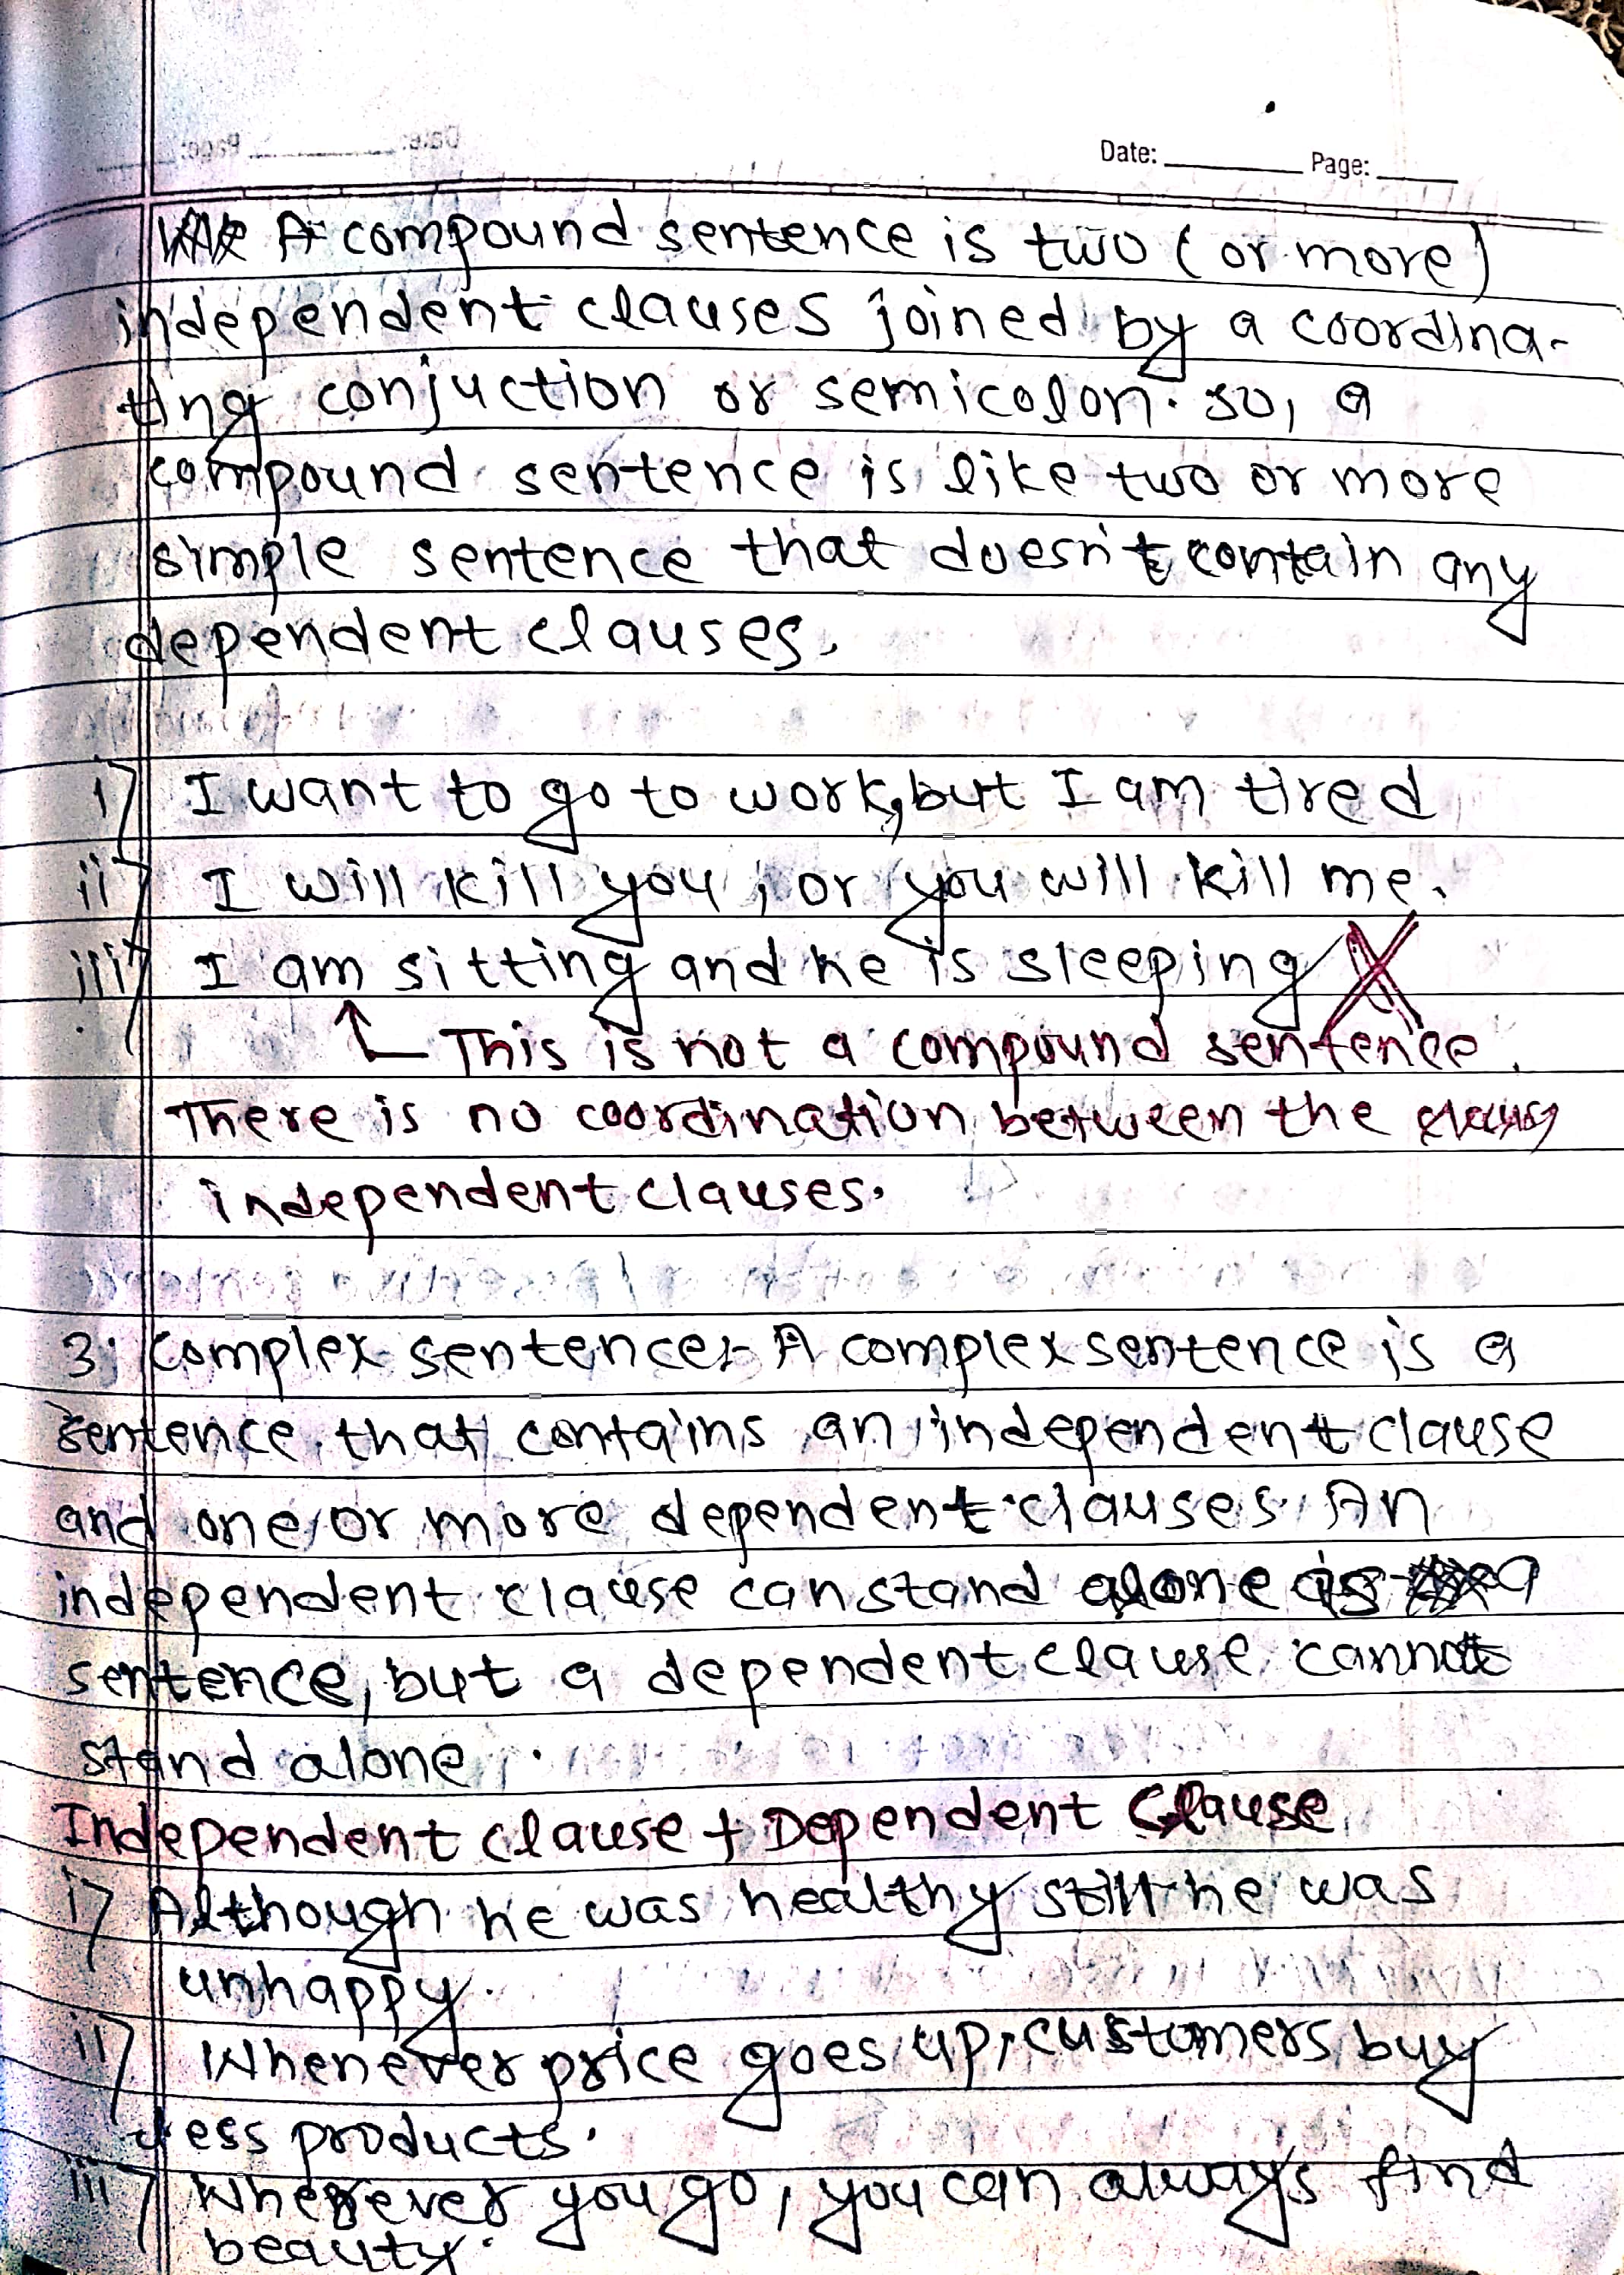 Date: Page:
A compound sentence is two (or more)
independent clauses joined by a coordina-
ting conjuction or semicolon. so, a
compound sentence is like two or more
simple sentence that doesn't contain any
dependent clauses.
i) I want to go to work, but I am tired
ii) I will kill you, or you will kill me.
iii) I am sitting and he is sleeping X
This is not a compound sentence.
There is no coordination between the
independent clauses.
3. Complex sentence:- A complex sentence is a
sentence that contains an independent clause
and one or more dependent clauses. An
independent clause can stand alone as a
sentence, but a dependent clause cannot
stand alone.
Independent clause + Dependent Clause
i) Although he was healthy still he was
unhappy.
ii) Whenever price goes up, customers buy
less products.
iii) Wherever you go, you can always find
beauty.